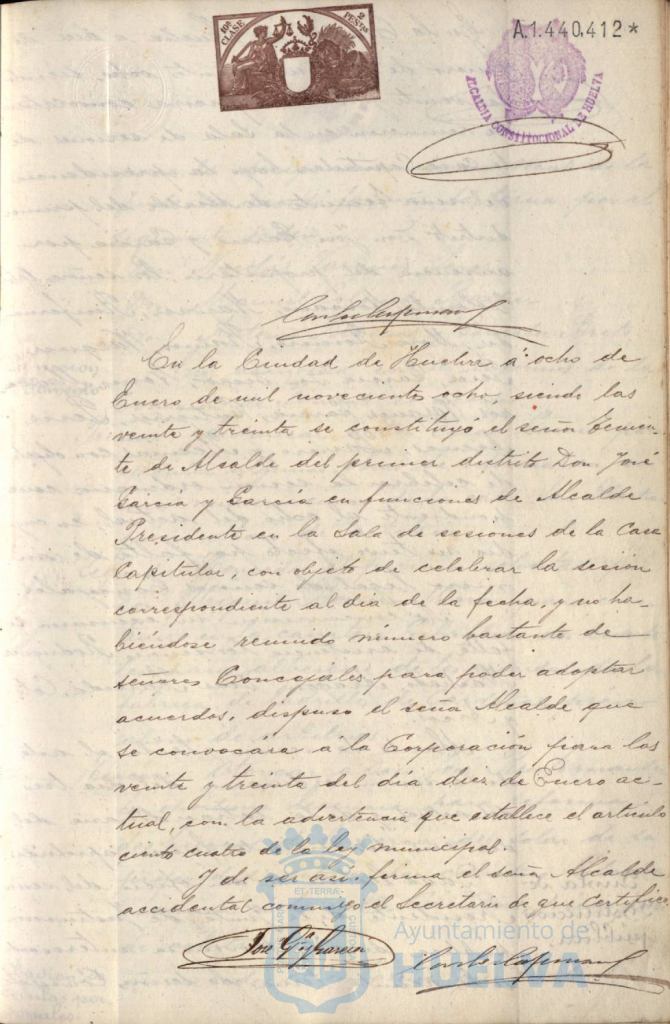 10ª CLASE
2 PESTAS
A.1.440.412*
ALCALDIA CONSTITUCIONAL DE HUELVA
En la Ciudad de Huelva á ocho de
Enero de mil novecientos ocho, siendo las
veinte y treinta se constituyó el señor Tenien-
te de Alcalde del primer distrito Don José
García y García en funciones de Alcalde
Presidente en la Sala de sesiones de la Casa
Capitular, con objeto de celebrar la sesión
correspondiente al dia de la fecha, y no ha-
biéndose reunido número bastante de
señores Concejales para poder adoptar
acuerdos, dispuso el señor Alcalde que
se convocára á la Corporación para las
veinte y treinta del día diez de Enero ac-
tual, con la advertencia que establece el artículo
ciento cuatro de la ley municipal.
Y de ser así firma el señor Alcalde
accidental conmigo el Secretario de que certifico.
José Gª y García
Ayuntamiento de
HUELVA